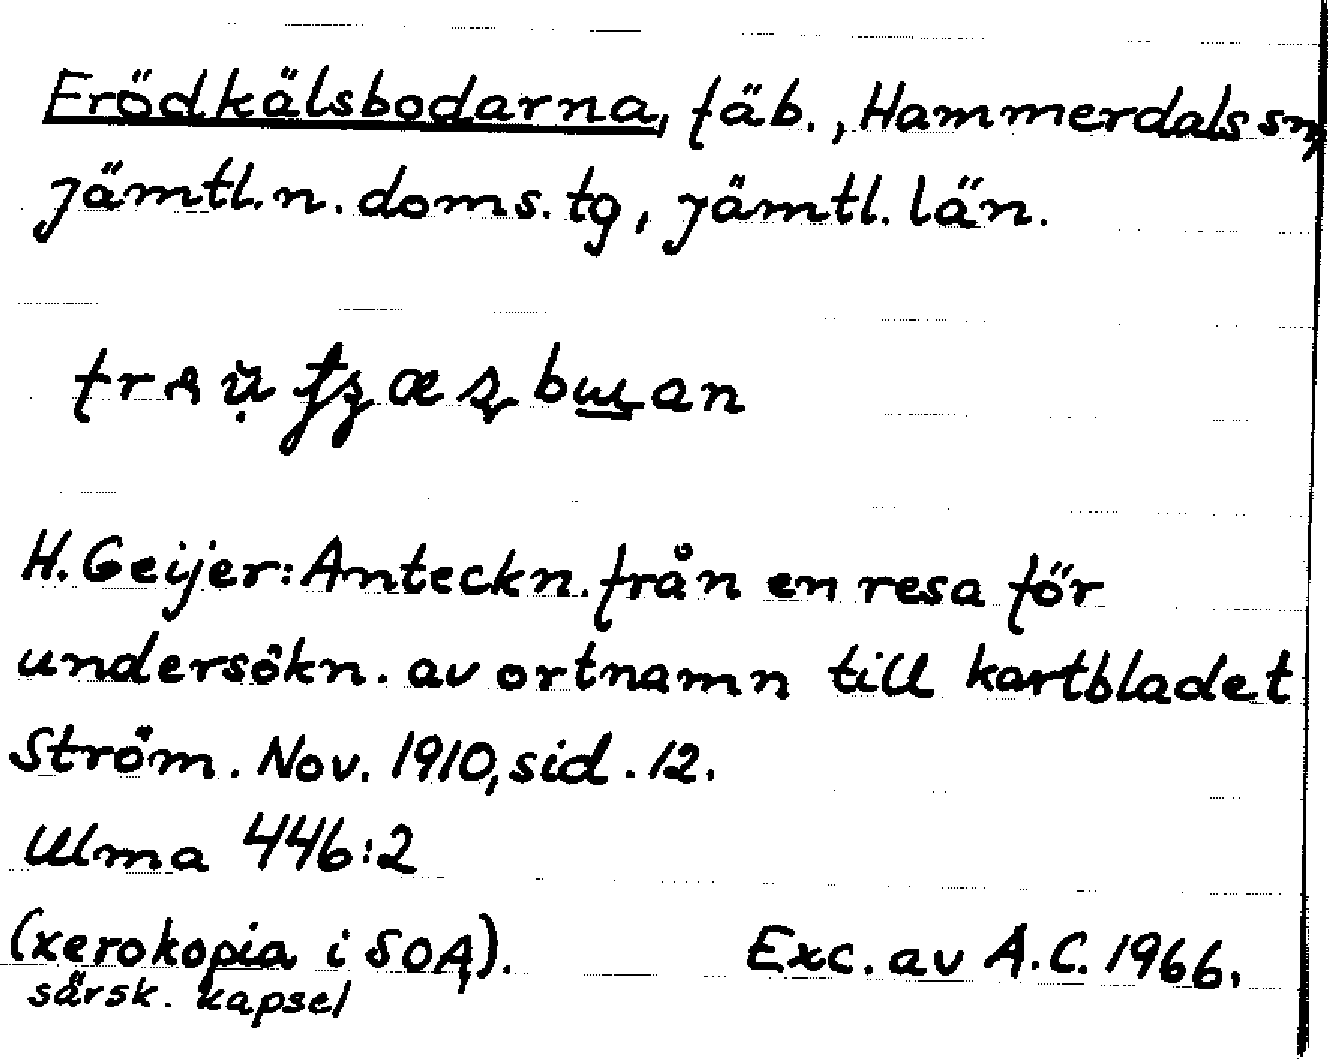 Frödkälsbodarna, fäb., Hammerdals sn,
Jämtl.n. doms. tg, Jämtl. län.
H. Geijer: Anteckn. från en resa för
undersökn. av ortnamn till kartbladet
Ström. Nov. 1910, sid. 12.
Ulma 446:2
(xerokopia i SOA). Exc. av A.C. 1966.
särsk. kapsel